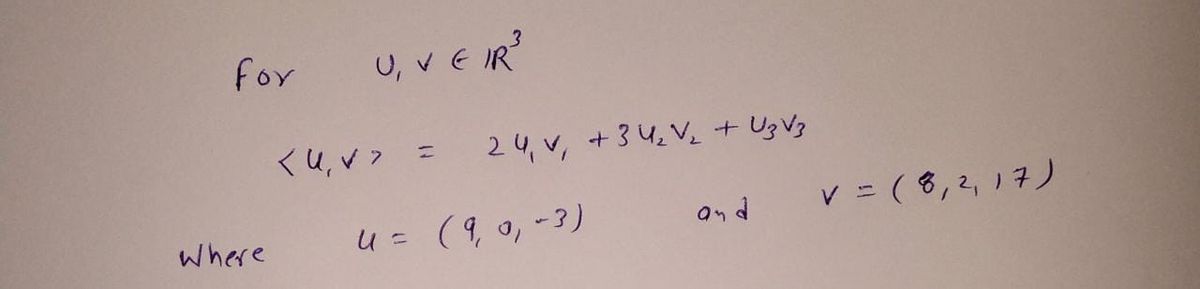 For U, V ∈ ℝ³
<u, v> = 2 u₁ v₁ + 3 u₂ v₂ + u₃ v₃
where u = (9, 0, -3) and v = (8, 2, 17)